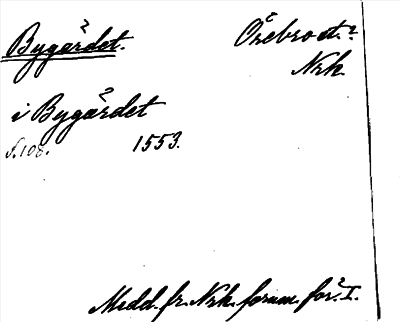 Bygärdet.
Örebro st.
Nrk.
i Bygärdet
s. 108. 1553.
Medd. fr. Nrk. fornm. för. I.